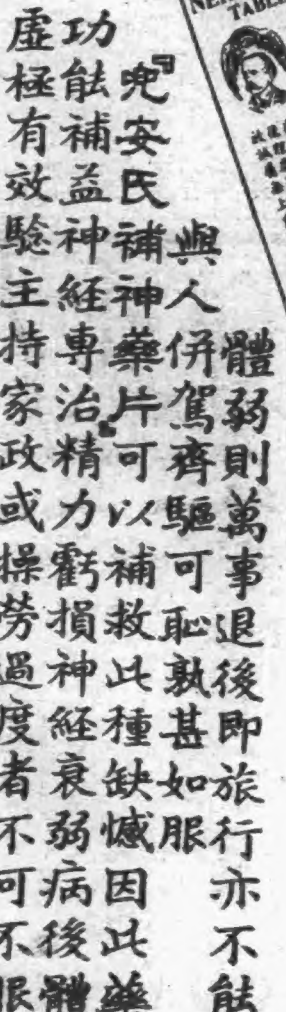 體弱則萬事退後即旅行亦不能
與人併駕齊驅可恥孰甚如服
『兜安氏補神藥片』可以補救此種缺憾因此藥
功能補益神經專治精力虧損神經衰弱病後體
虛極有效驗主持家政或操勞過度者不可不服
TABLE